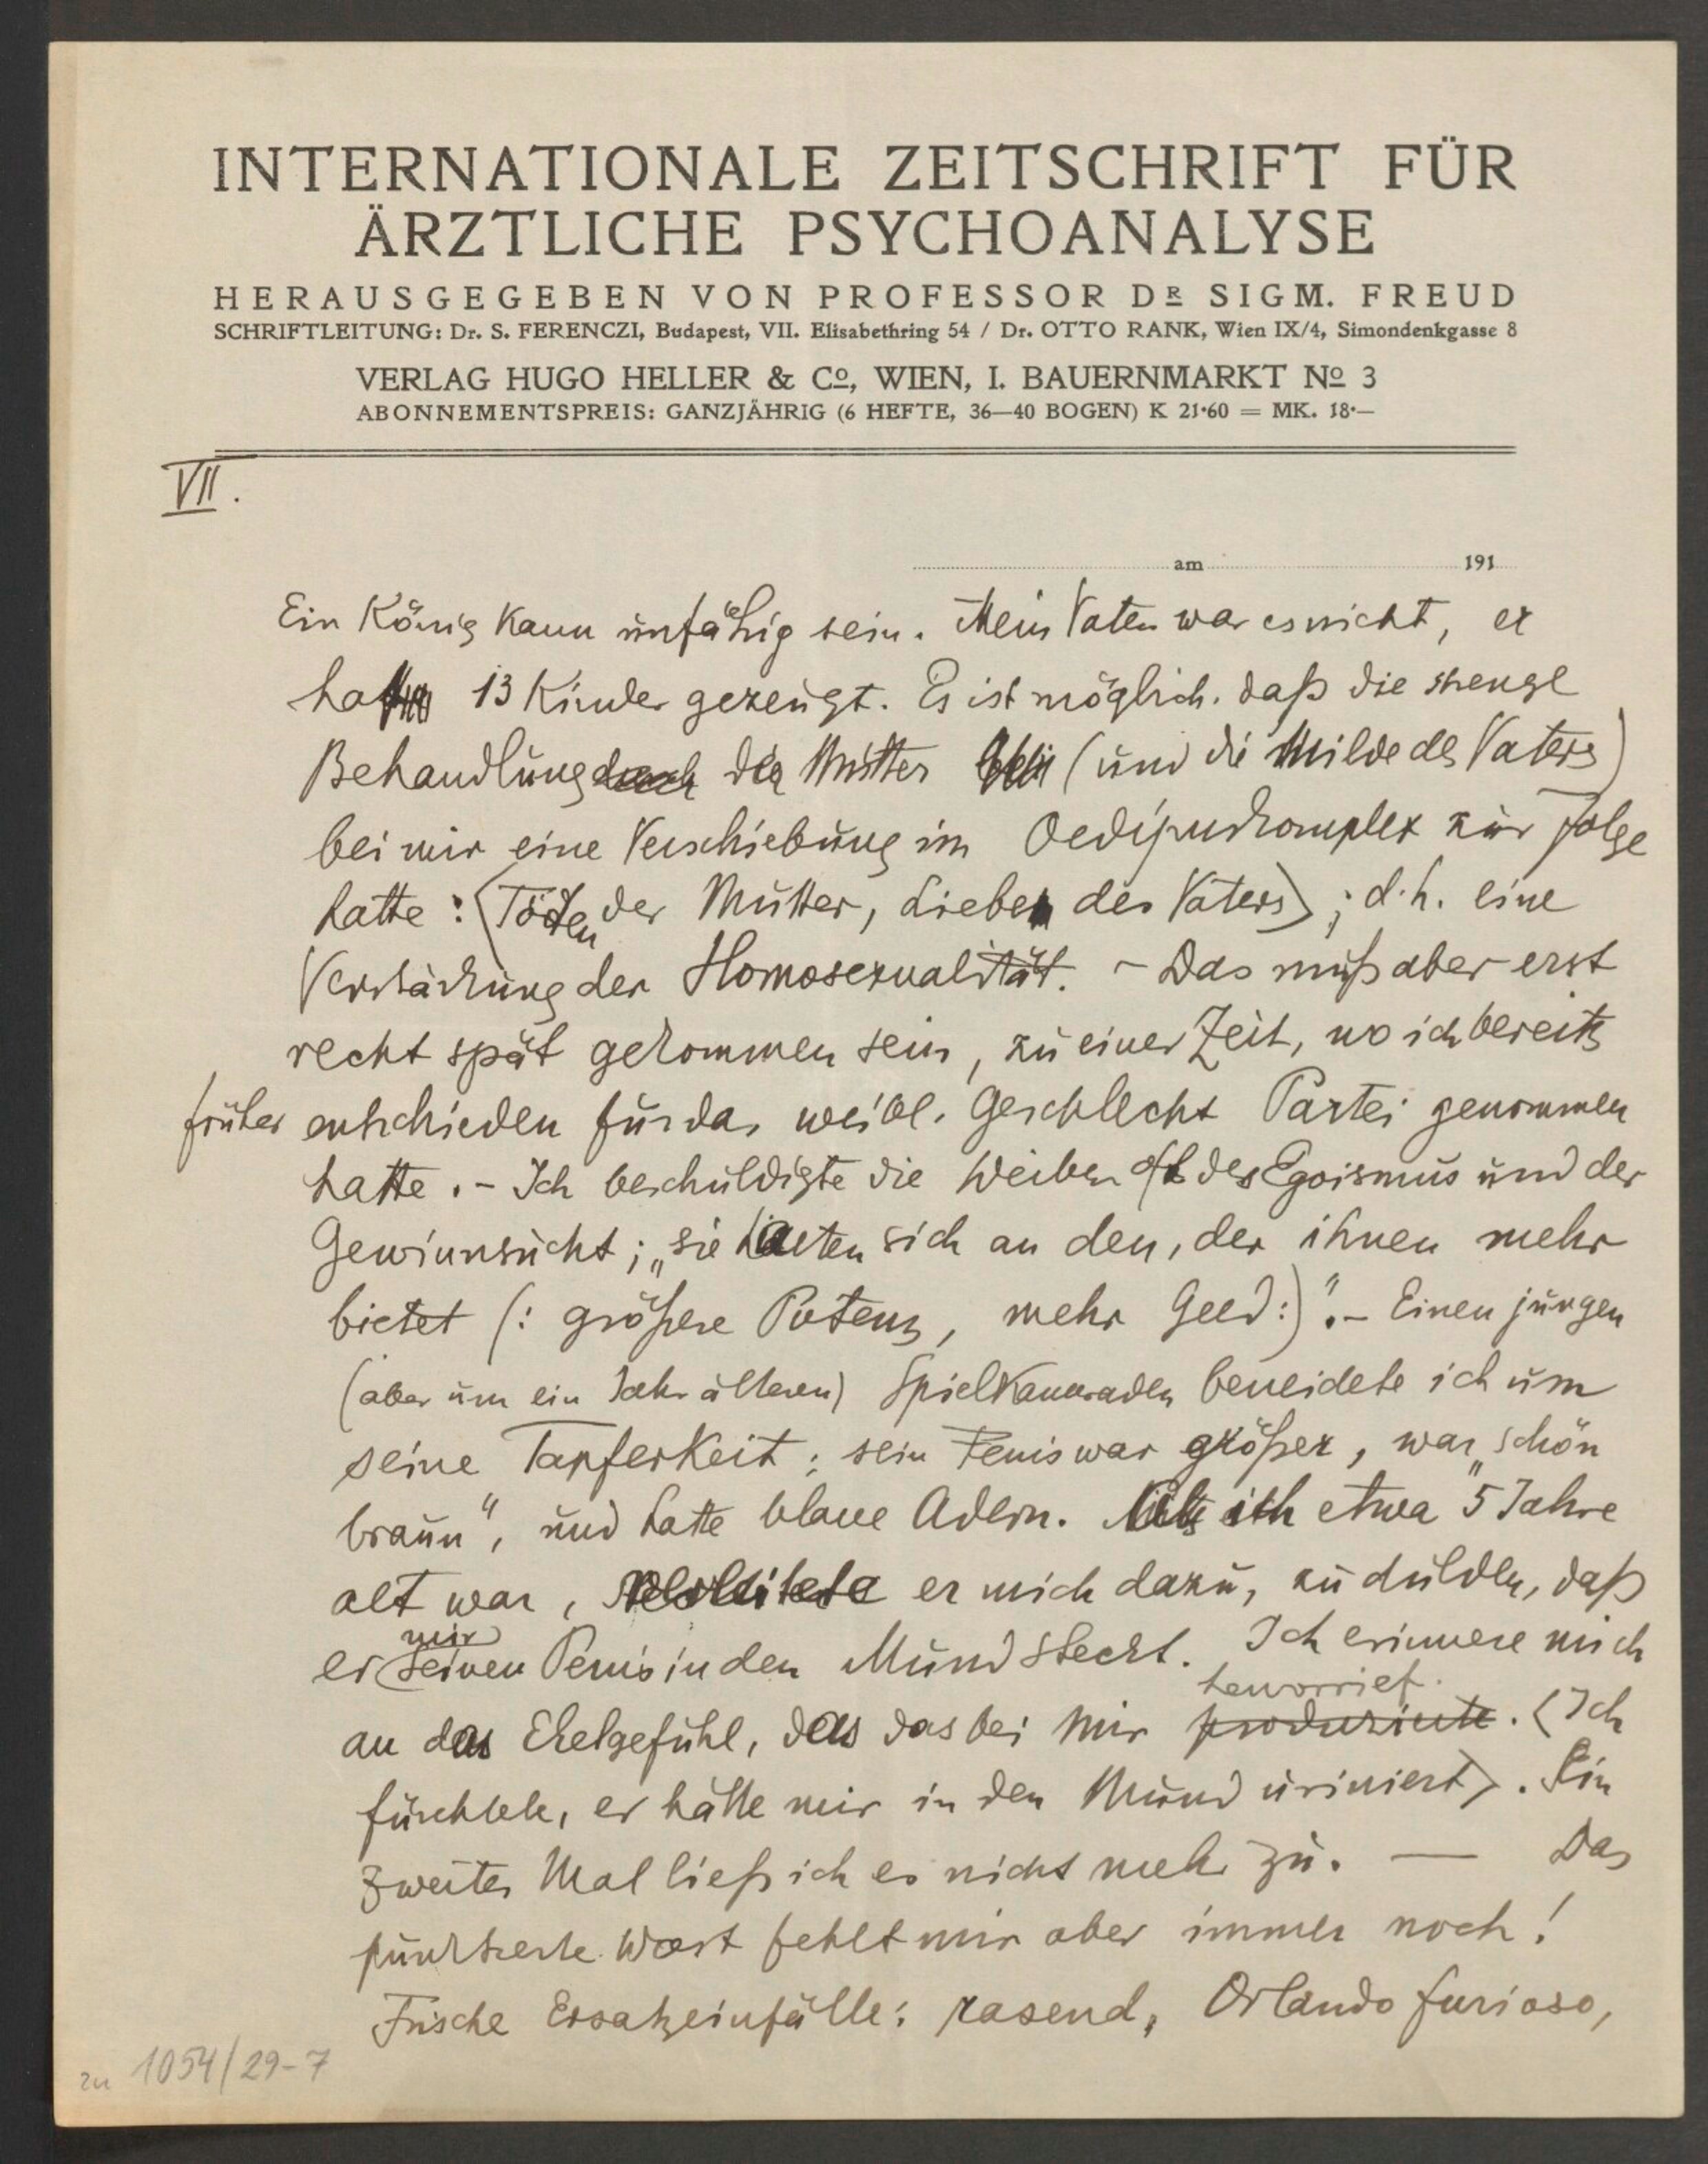 INTERNATIONALE ZEITSCHRIFT FÜR
ÄRZTLICHE PSYCHOANALYSE
HERAUSGEGEBEN VON PROFESSOR DR SIGM. FREUD
SCHRIFTLEITUNG: Dr. S. FERENCZI, Budapest, VII. Elisabethring 54 / Dr. OTTO RANK, Wien IX/4, Simondenkgasse 8
VERLAG HUGO HELLER & Co, WIEN, I. BAUERNMARKT No 3
ABONNEMENTSPREIS: GANZJÄHRIG (6 HEFTE, 36—40 BOGEN) K 21·60 = MK. 18·—
VII.
am 191
Ein König kann unfähig sein. Mein Vater war es nicht, er
hat 13 Kinder gezeugt. Es ist möglich, daß die strenge
Behandlung durch die Mutter (und die Milde des Vaters)
bei mir eine Verschiebung im Oedipuskomplex zur Folge
hatte: (Töten der Mutter, Lieben des Vaters); d.h. eine
Verstärkung der Homosexualität. – Das muß aber erst
recht spät gekommen sein, zu einer Zeit, wo ich bereits
früher entschieden für das weibl. Geschlecht Partei genommen
hatte. – Ich beschuldigte die Weiber oft des Egoismus und der
Gewinnsucht; „sie halten sich an den, der ihnen mehr
bietet (: größere Potenz, mehr Geld:)". – Einen jungen
(aber um ein Jahr älteren) Spielkameraden beneidete ich um
seine Tapferkeit; sein Penis war größer, war „schön
braun", und hatte blaue Adern. Als ich etwa 5 Jahre
alt war, er mich dazu, zu dulden, daß
er mir seinen Penis in den Mund steckt. Ich erinnere mich
hervorrief.
an das Ekelgefühl, das das bei mir produzierte. (Ich
fürchtete, er hätte mir in den Mund uriniert). Ein
zweites Mal ließ ich es nicht mehr zu. — Das
punktierte Wort fehlt mir aber immer noch!
Frische Ersatzeinfälle: rasend, Orlando furioso,
zu 1054/29-7